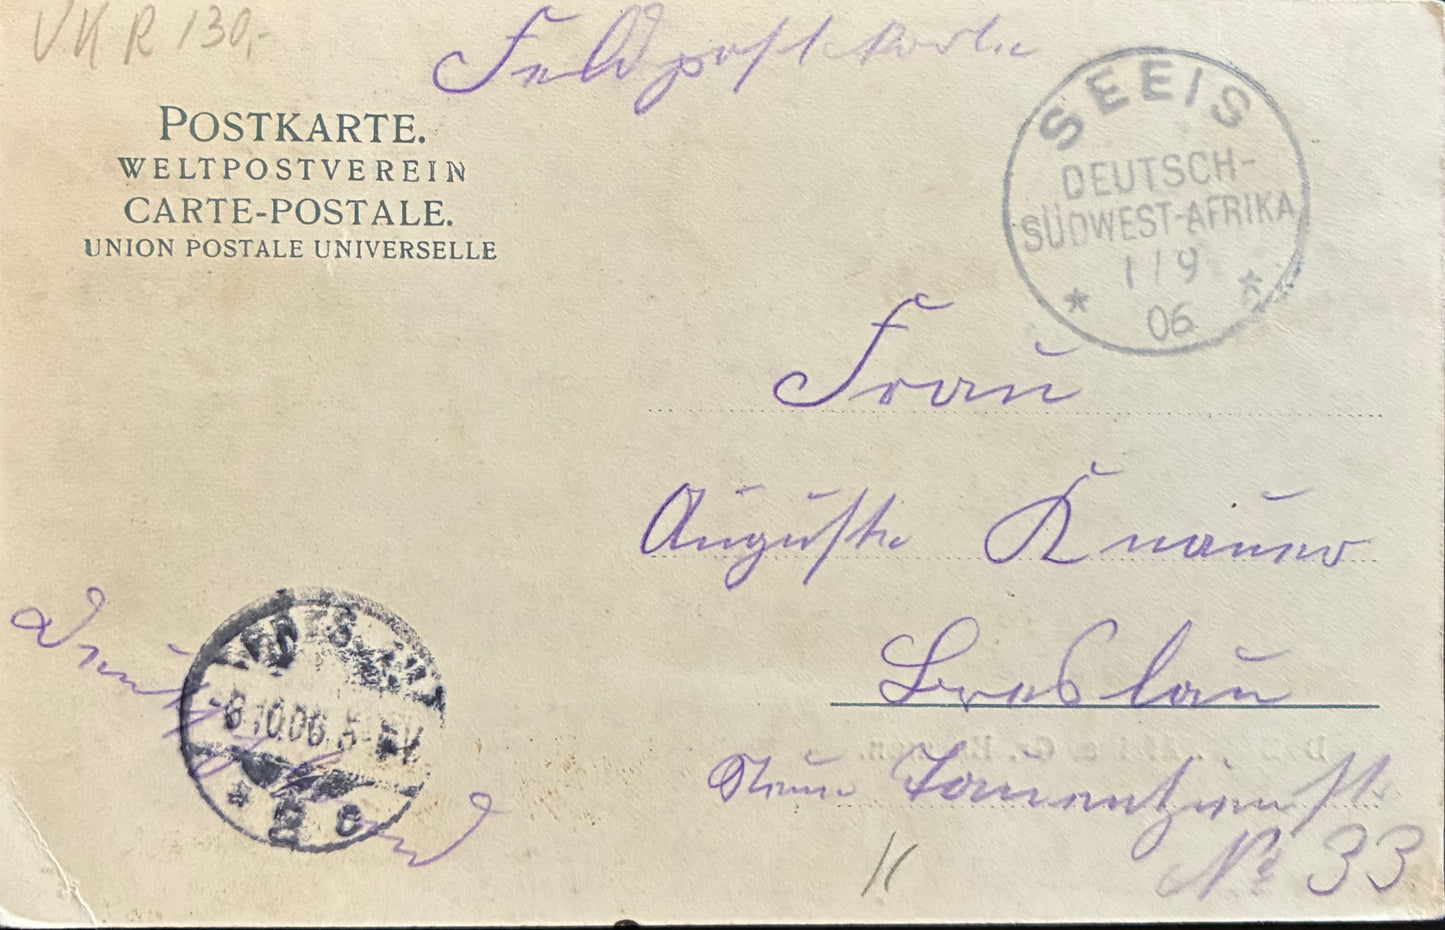 VK R 130,-
Feldpostkarte
POSTKARTE.
WELTPOSTVEREIN
CARTE-POSTALE.
UNION POSTALE UNIVERSELLE
SEEIS
DEUTSCH-
SÜDWEST-AFRIKA
1/9
06
Frau
Auguste Knauer
Breslau
Neue Tauentzienstr
No 33
Deutschland
BRESLAU
-8.10.06.
* 2 c